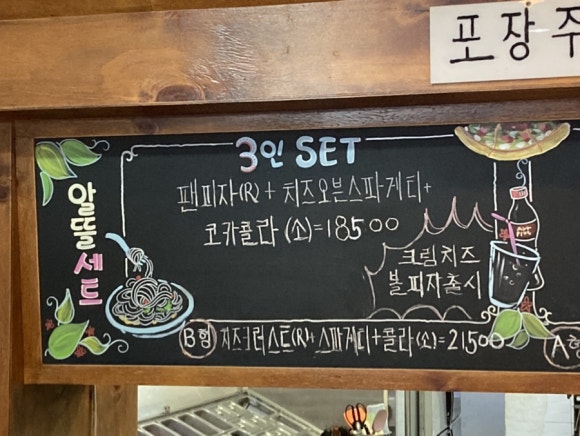 포장주
3인 SET
알뜰세트
팬피자(R) + 치즈오븐스파게티+
코카콜라 (소)=18500
크림치즈
볼피자출시
B형 치즈크러스트(R)+스파게티+콜라(소)=21,500
A형